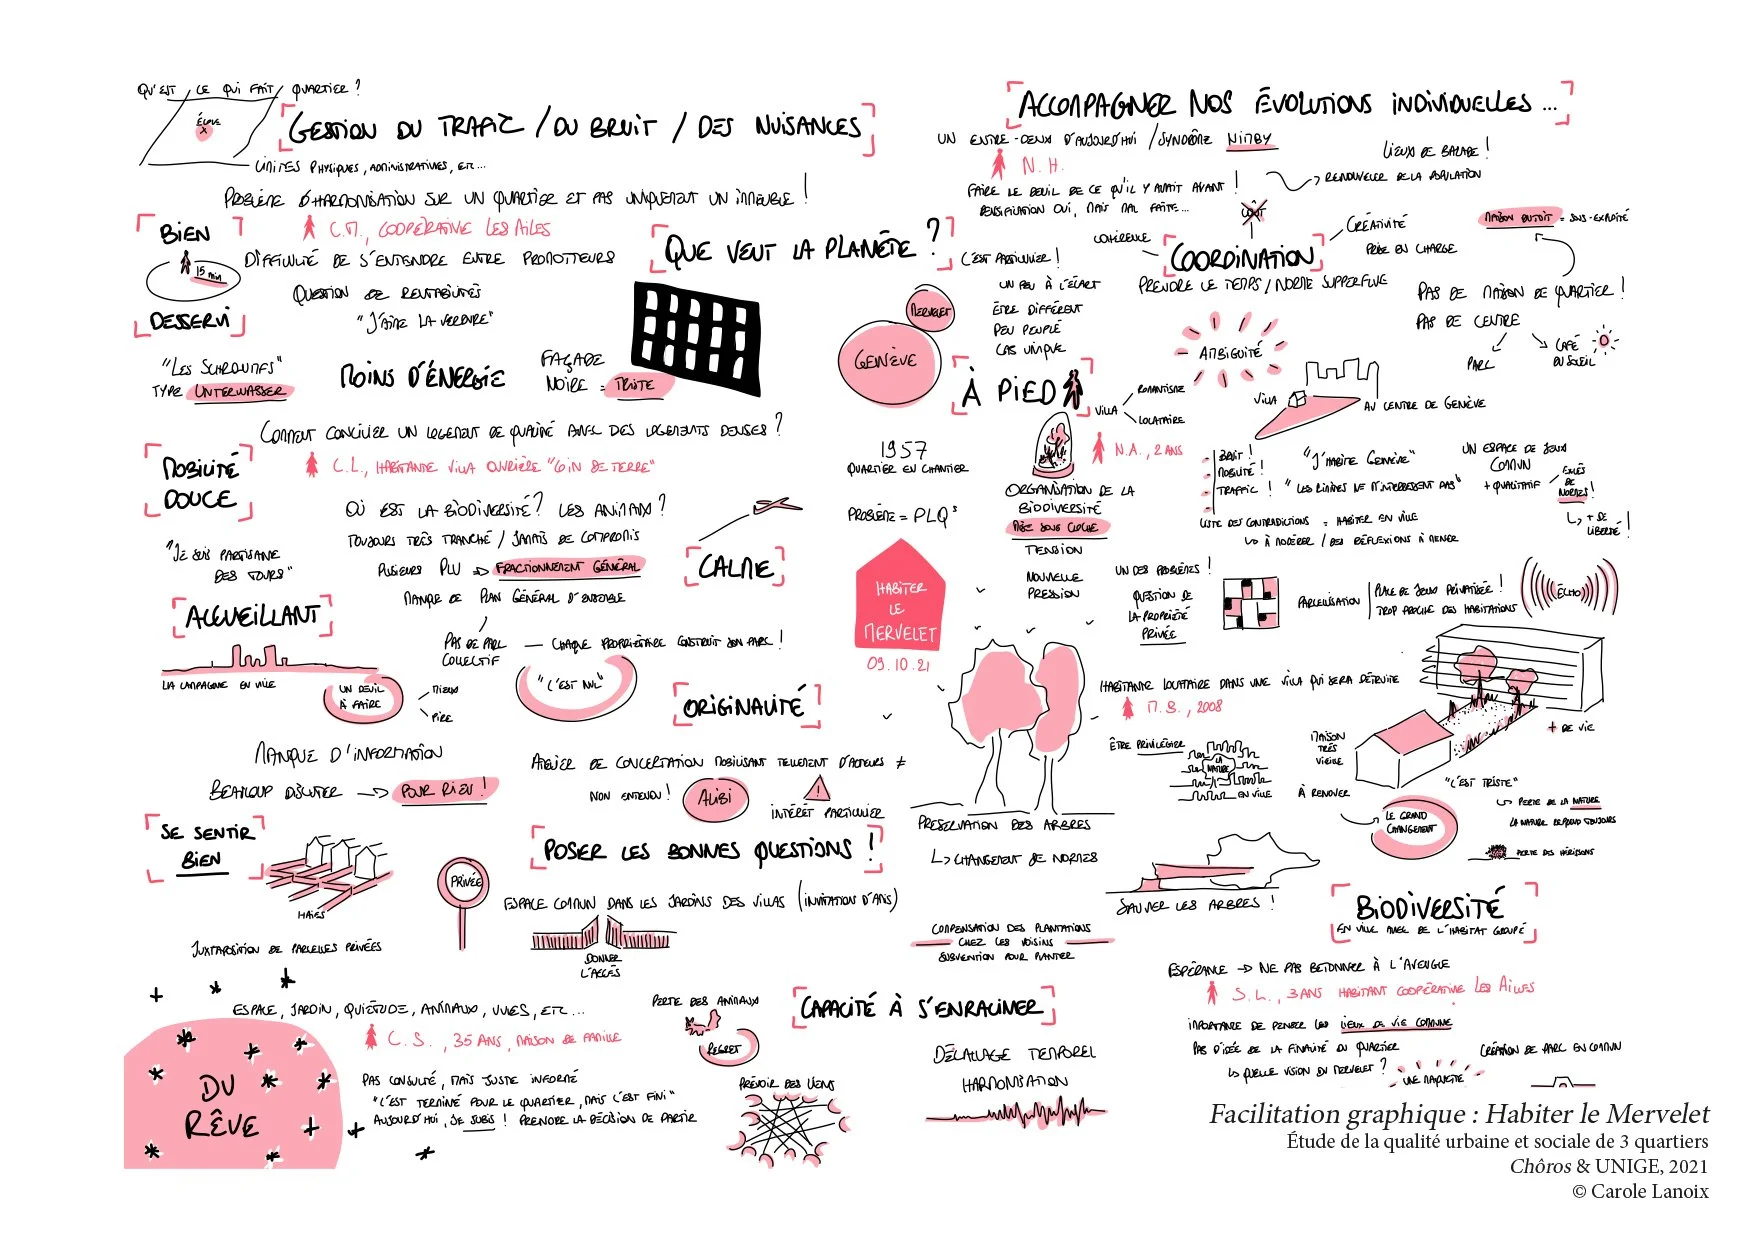 QU'EST CE QUI FAIT QUARTIER ?
ÉCOLE
LIMITES PHYSIQUES, ADMINISTRATIVES, ETC...
GESTION DU TRAFIC / DU BRUIT / DES NUISANCES
PROBLÈME D'HARMONISATION SUR UN QUARTIER ET PAS UNIQUEMENT UN IMMEUBLE !
BIEN
15 min
DESSERVI
C.M., COOPÉRATIVE LES AILES
DIFFICULTÉ DE S'ENTENDRE ENTRE PROMOTTEURS
QUESTION DE RENTABILITÉS
"J'AIME LA VERDURE"
QUE VEUT LA PLANÈTE ?
TYPE UNTERWASSER
MOINS D'ÉNERGIE
FAÇADE
NOIRE = TRISTE
COMMENT CONCILIER UN LOGEMENT DE QUALITÉ AVEC DES LOGEMENTS DENSES ?
MOBILITÉ
DOUCE
C.L., HABITANTE VILLA OUVRIÈRE "COIN DE TERRE"
OÙ EST LA BIODIVERSITÉ ? LES ANIMAUX ?
TOUJOURS TRÈS TRANCHÉ / JAMAIS DE COMPROMIS
"JE SUIS PARTISANE
DES TOURS"
PLUSIEURS PLU → FRACTIONNEMENT GÉNÉRAL
MANQUE DE PLAN GÉNÉRAL D'ENSEMBLE
CALME
ACCUEILLANT
PAS DE PARC
COLLECTIF
— CHAQUE PROPRIÉTAIRE CONSTRUIT SON PARC !
"C'EST NUL"
LA CAMPAGNE EN VILLE
UN DEUIL
À FAIRE
MIEUX
PIRE
ORIGINALITÉ
MANQUE D'INFORMATION
BEAUCOUP DISCUTER → POUR RIEN !
ATELIER DE CONCERTATION MOBILISANT TELLEMENT D'ACTEURS ≠
NON ENTENDU !
ALIBI
!
INTÉRÊT PARTICULIER
SE SENTIR
BIEN
HAIES
JUXTAPOSITION DE PARCELLES PRIVÉES
PRIVÉE
POSER LES BONNES QUESTIONS !
ESPACE COMMUN DANS LES JARDINS DES VILLAS (INVITATION D'AMIS)
DONNER
L'ACCÈS
ESPACE, JARDIN, QUIÉTUDE, ANIMAUX, VUES, ETC...
C.S., 35 ANS, MAISON DE FAMILLE
DU
RÊVE
PAS CONSULTÉ, MAIS JUSTE INFORMÉ
"C'EST TERMINÉ POUR LE QUARTIER, MAIS C'EST FINI"
AUJOURD'HUI, JE SUBIS ! PRENDRE LA DÉCISION DE PARTIR
PERTE DES ANIMAUX
REGRET
PRÉVOIR DES LIENS
CAPACITÉ À S'ENRACINER
DÉCALLAGE TEMPOREL
HARMONISATION
ACCOMPAGNER NOS ÉVOLUTIONS INDIVIDUELLES ...
UN ENTRE-DEUX D'AUJOURD'HUI / SYNDRÔME NIMBY
N.H.
FAIRE LE DEUIL DE CE QU'IL Y AVAIT AVANT !
DENSIFICATION OUI, MAIS MAL FAITE...
LIEUX DE BALADE !
RENOUVELER DE LA POPULATION
COÛT
COHÉRENCE
COORDINATION
CRÉATIVITÉ
PRISE EN CHARGE
PRENDRE LE TEMPS / NORME SUPPERFLUE
= SOUS-EXPLOITÉ
PAS DE MAISON DE QUARTIER !
PAS DE CENTRE
PARC
CAFÉ
DU SOLEIL
C'EST PARTICULIER !
UN PEU À L'ÉCART
ÊTRE DIFFÉRENT
PEU PEUPLÉ
CAS UNIQUE
MERVELET
GENÈVE
À PIED
AMBIGUITÉ
VILLA
ROMANTISME
LOCATAIRE
VILLA
AU CENTRE DE GENÈVE
1957
QUARTIER EN CHANTIER
PROBLÈME = PLQs
N.A., 2 ANS
ORGANISATION DE LA
BIODIVERSITÉ
MISE SOUS CLOCHE
TENSION
NOUVELLE
PRESSION
BRUIT !
MOBILITÉ !
TRAFFIC !
"J'HABITE GENÈVE"
"LES LIMITES NE M'INTÉRESSENT PAS"
LISTE DES CONTRADICTIONS = HABITER EN VILLE
↳ À MODÉRER / DES RÉFLEXIONS À MENER
UN ESPACE DE JEUX
COMMUN
+ QUALITATIF
DE
NORMES !
↳ + DE
LIBERTÉ !
HABITER
LE
MERVELET
09.10.21
UN DES PROBLÈMES !
QUESTION DE
LA PROPRIÉTÉ
PRIVÉE
PARCELLISATION
PLACE DE JEUX PRIVATISÉE !
TROP PROCHE DES HABITATIONS
ÉCHO
HABITANTE LOCATAIRE DANS UNE VILLA QUI SERA DÉTRUITE
M.B., 2008
ÊTRE PRIVILÉGIÉE
LA
NATURE
EN VILLE
MAISON
TRÈS
VIEILLE
À RENOVER
+ DE VIE
"C'EST TRISTE"
↳ PERTE DE LA NATURE
LA NATURE REPREND TOUJOURS
LE GRAND
CHANGEMENT
PERTE DES HÉRISSONS
PRESERVATION DES ARBRES
↳ CHANGEMENT DE NORMES
SAUVER LES ARBRES !
COMPENSATION DES PLANTATIONS
CHEZ LES VOISINS
SUBVENTION POUR PLANTER
BIODIVERSITÉ
EN VILLE AVEC DE L'HABITAT GROUPÉ
ESPÉRANCE → NE PAS BETONNER À L'AVEUGLE
S.L., 3 ANS HABITANT COOPÉRATIVE LES AILES
IMPORTANCE DE PENSER LES LIEUX DE VIE COMMUNE
PAS D'IDÉE DE LA FINALITÉ DU QUARTIER
↳ QUELLE VISION DU MERVELET ?
UNE MAQUETTE
CRÉATION DE PARC EN COMMUN
Facilitation graphique : Habiter le Mervelet
Étude de la qualité urbaine et sociale de 3 quartiers
Chôros & UNIGE, 2021
© Carole Lanoix